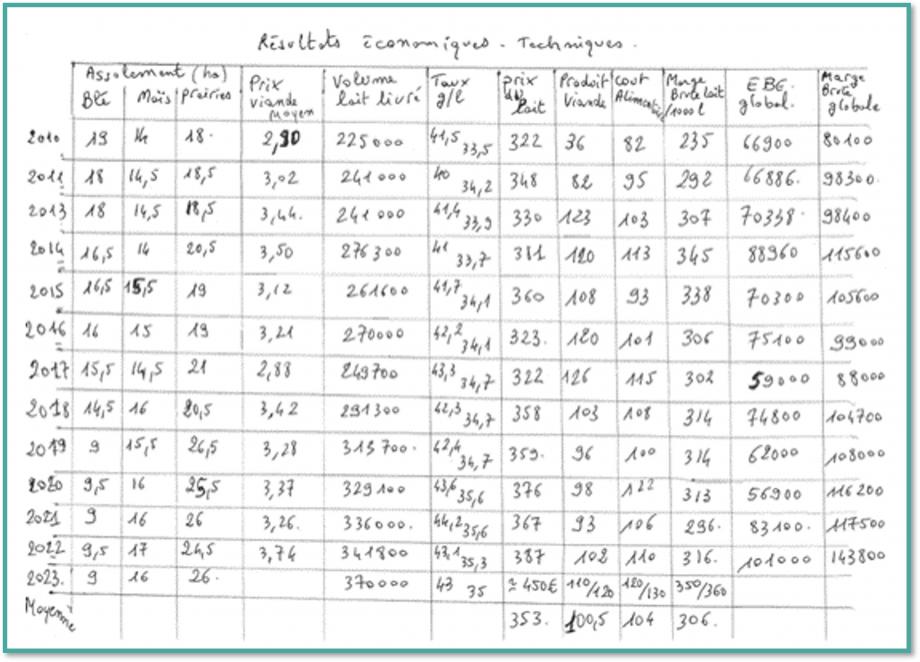 Résultats économiques - Techniques.
Assolement (ha)
Blé Maïs prairies Prix viande Moyen Volume lait livré Taux g/l prix du lait Produit Viande cout Alimentaire Marge Brute lait /1000 l EBE global. Marge Brute globale
2010 19 14 18 2,90 225000 41,5 33,5 322 36 82 235 66900 80100
2011 18 14,5 18,5 3,02 241000 40 34,2 348 82 95 292 66886 98300
2013 18 14,5 18,5 3,44 241000 41,4 33,9 330 123 103 307 70338 98400
2014 16,5 14 20,5 3,50 276300 41 33,7 381 120 113 345 88960 115600
2015 16,5 15,5 19 3,12 261600 41,7 34,1 360 108 93 338 70300 105600
2016 16 15 19 3,21 270000 42,2 34,1 323 120 101 306 75100 99000
2017 15,5 14,5 21 2,88 249700 43,3 34,7 322 126 115 302 59000 88000
2018 14,5 16 20,5 3,42 291300 42,3 34,7 358 103 108 314 74800 104700
2019 9 15,5 26,5 3,28 313700 42,4 34,7 359 96 100 314 62000 108000
2020 9,5 16 25,5 3,37 329100 43,6 35,6 376 98 122 313 56900 116200
2021 9 16 26 3,26 336000 44,2 35,6 367 93 106 296 83100 117500
2022 9,5 17 24,5 3,74 341800 43,1 35,3 387 102 110 316 101000 143800
2023 9 16 26 370000 43 35 ≃ 450€ 110/120 120/130 350/360
Moyenne 353 100,5 104 306